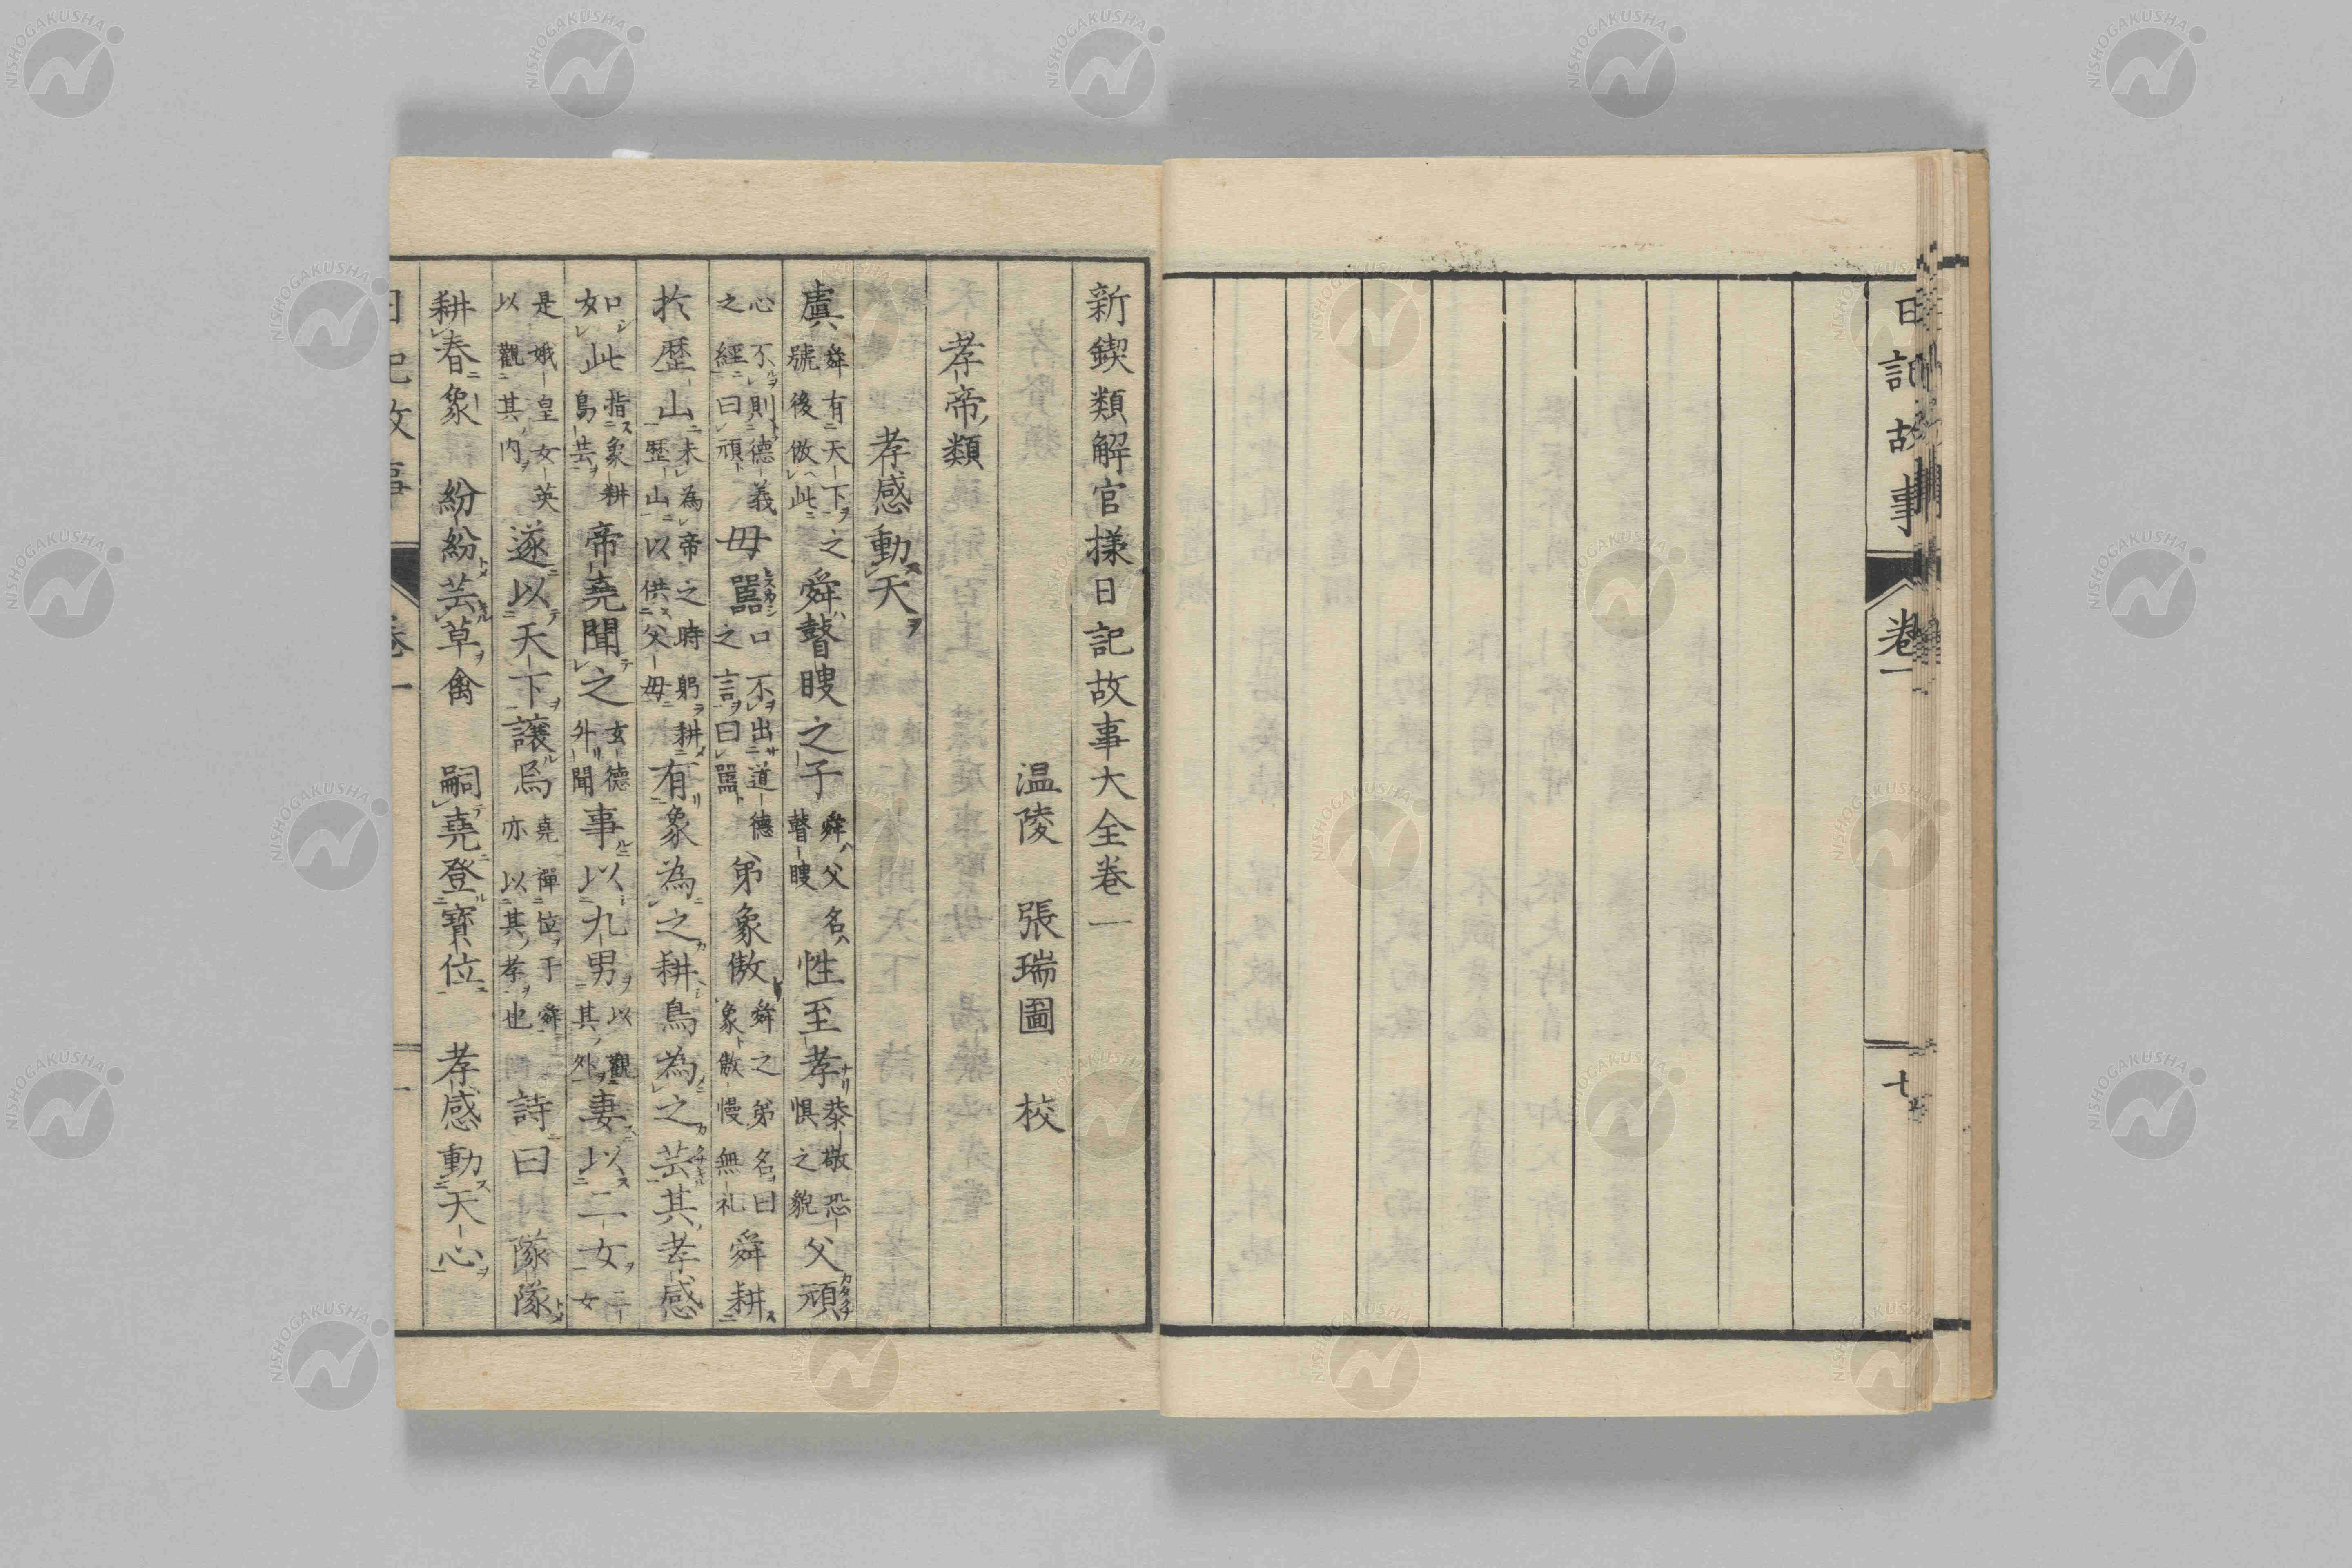 日記故事 卷一 七
新鍥類解官樣日記故事大全卷一
温陵 張瑞圖 校
孝帝類
孝感動天ヲ
虞舜有天下之號後倣此舜瞽瞍之子舜父名瞽瞍性至孝恭敬恐惧之貌父頑
心不則德義之經曰頑母嚚口不出道德之言曰嚚弟象傲舜之弟名曰象傲慢無礼舜耕
於歷山未為帝之時躬耕歷山以供父母有象為之耕鳥為之芸其孝感
如此指象耕鳥芸帝堯聞之玄德外聞事以九男以觀其外妻以二女二女
是娥皇女英以觀其内遂以天下讓焉堯禪位于舜亦以其孝也詩曰 隊隊
耕春象 紛紛芸草禽 嗣堯登寶位 孝感動天心
日記故事 卷一 一
NISHOGAKUSHA